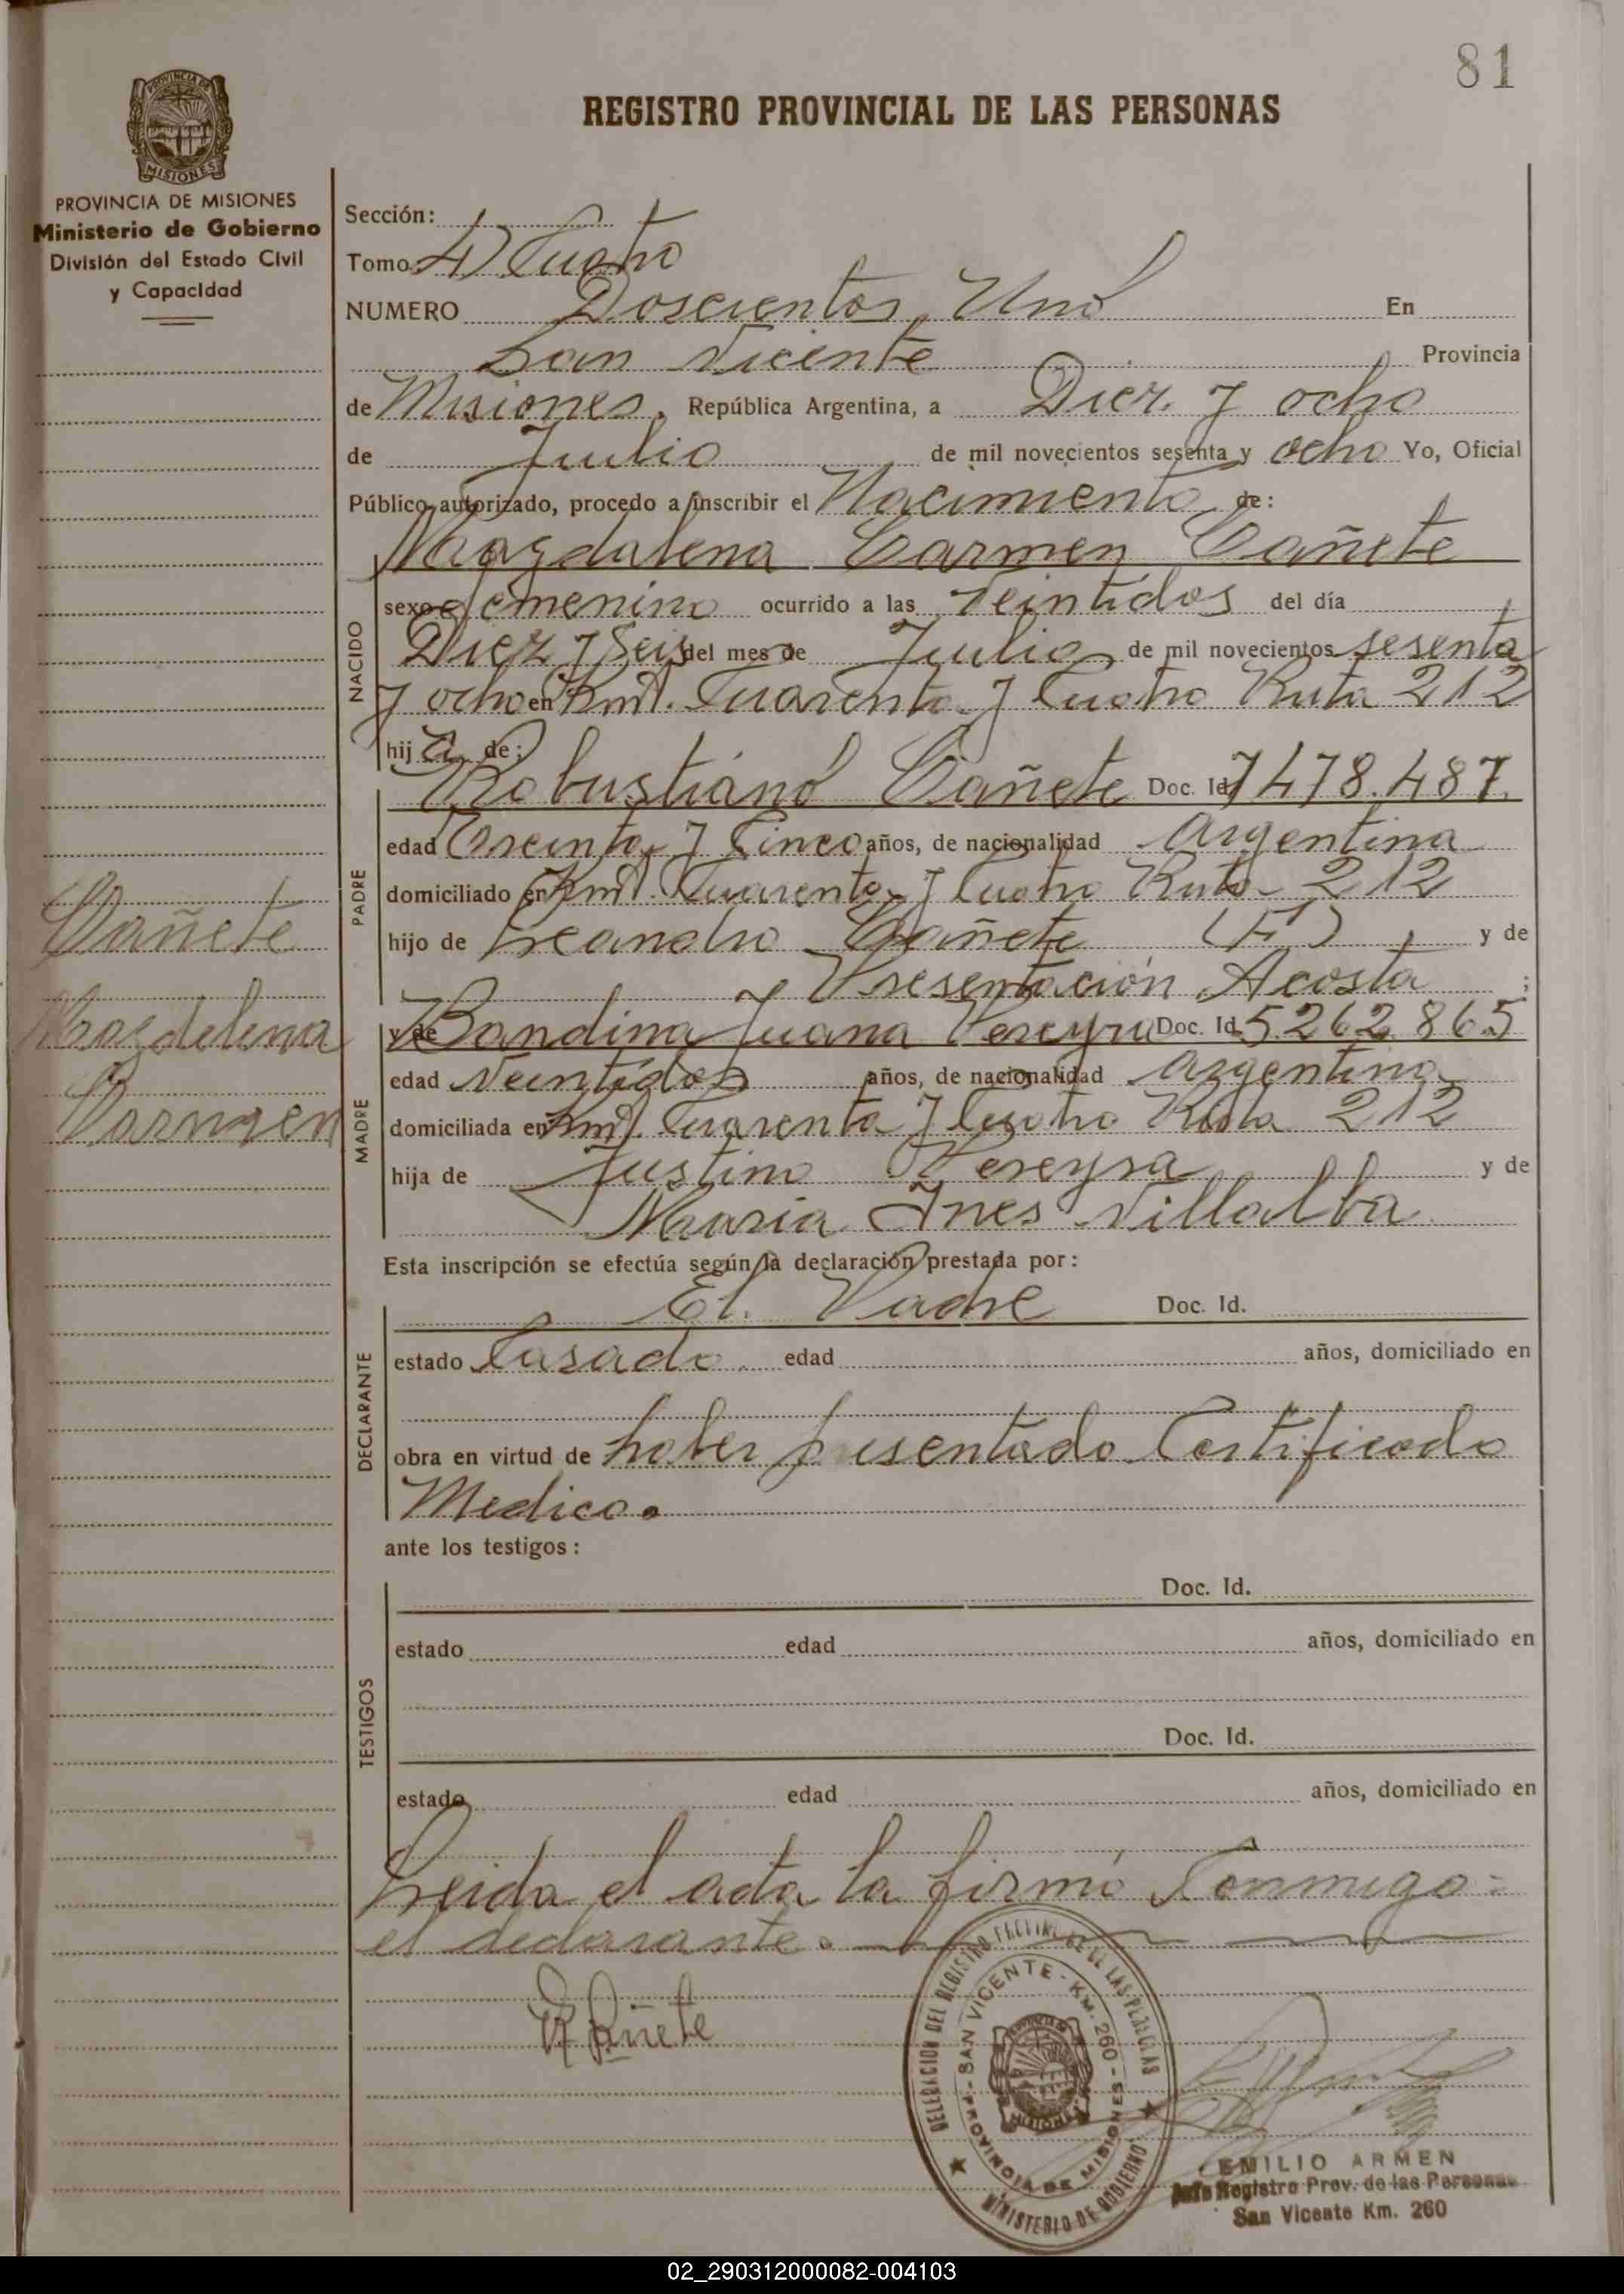 81
REGISTRO PROVINCIAL DE LAS PERSONAS
PROVINCIA DE MISIONES
MISIONES
PROVINCIA DE MISIONES
Ministerio de Gobierno
División del Estado Civil
y Capacidad
Sección:
Tomo 4) Cuatro
NUMERO Doscientos Uno En
San Vicente Provincia
de Misiones, República Argentina, a Diez y ocho
de Julio de mil novecientos sesenta y ocho Yo, Oficial
Público autorizado, procedo a inscribir el Nacimiento de:
Magdalena Carmen Cañete
NACIDO
sexo femenino ocurrido a las Veintidos del día
Diez y Seis del mes de Julio de mil novecientos sesenta
y ocho en Kmt. Cuarenta y Cuatro Ruta 212
hij a de:
Robustiano Cañete Doc. Id 7478.487
PADRE
edad Treinta y Cinco años, de nacionalidad Argentina
domiciliado en Kmt. Cuarenta y Cuatro Ruta 212
hijo de Leandro Cañete (F) y de
Presentación Acosta ;
y de Bandina Juana Pereyra Doc. Id 5262.865
MADRE
edad Veintidos años, de nacionalidad Argentina
domiciliada en Kmt. Cuarenta y Cuatro Ruta 212
hija de Justino Pereyra y de
Maria Ines Villalba
Cañete
Magdelena
Carmen
Esta inscripción se efectúa según la declaración prestada por:
El Padre Doc. Id.
DECLARANTE
estado Casado edad años, domiciliado en
obra en virtud de haber presentado Certificado
Medico.
ante los testigos:
TESTIGOS
Doc. Id.
estado edad años, domiciliado en
Doc. Id.
estado edad años, domiciliado en
Leida el acta la firmó Conmigo
el declarante.
R Cañete
DELEGACION DEL REGISTRO PROVINCIAL DE LAS PERSONAS
SAN VICENTE - KM. 260 - PROVINCIA DE MISIONES
MINISTERIO DE GOBIERNO
EMILIO ARMEN
Jefe Registro Prov. de las Personas
San Vicente Km. 260
02_290312000082-004103